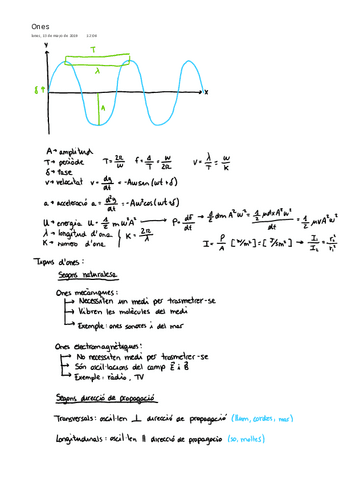 Ones
Y
T
λ
δ
A
X
A → amplitud
T → període T = 2π/w f = 1/T = w/2π v = λ/T = w/K
δ → fase
v → velocitat v = dy/dt = -Aw sin(wt+δ)
a → acceleració a = d²y/dt = -Aw² cos(wt+δ)
U → energia U = 1/2 m w² A²
λ → longitud d'ona
K → número d'ona K = 2π/λ
Tipus d'ones:
Segons naturalesa
Ones mecàniques:
→ Necessiten un medi per trasmetrer-se
→ Vibren les molècules del medi
→ Exemple: ones sonores i del mar
Ones electromagnètiques:
→ No necessiten medi per trasmetrer-se
→ Són oscil·lacions del camp E i B
→ Exemple: ràdio, TV
Segons direcció de propagació
Transversals: oscil·len ⊥ direcció de propagació (llum, cordes, mar)
Longitudinals: oscil·len || direcció de propagació (so, molles)